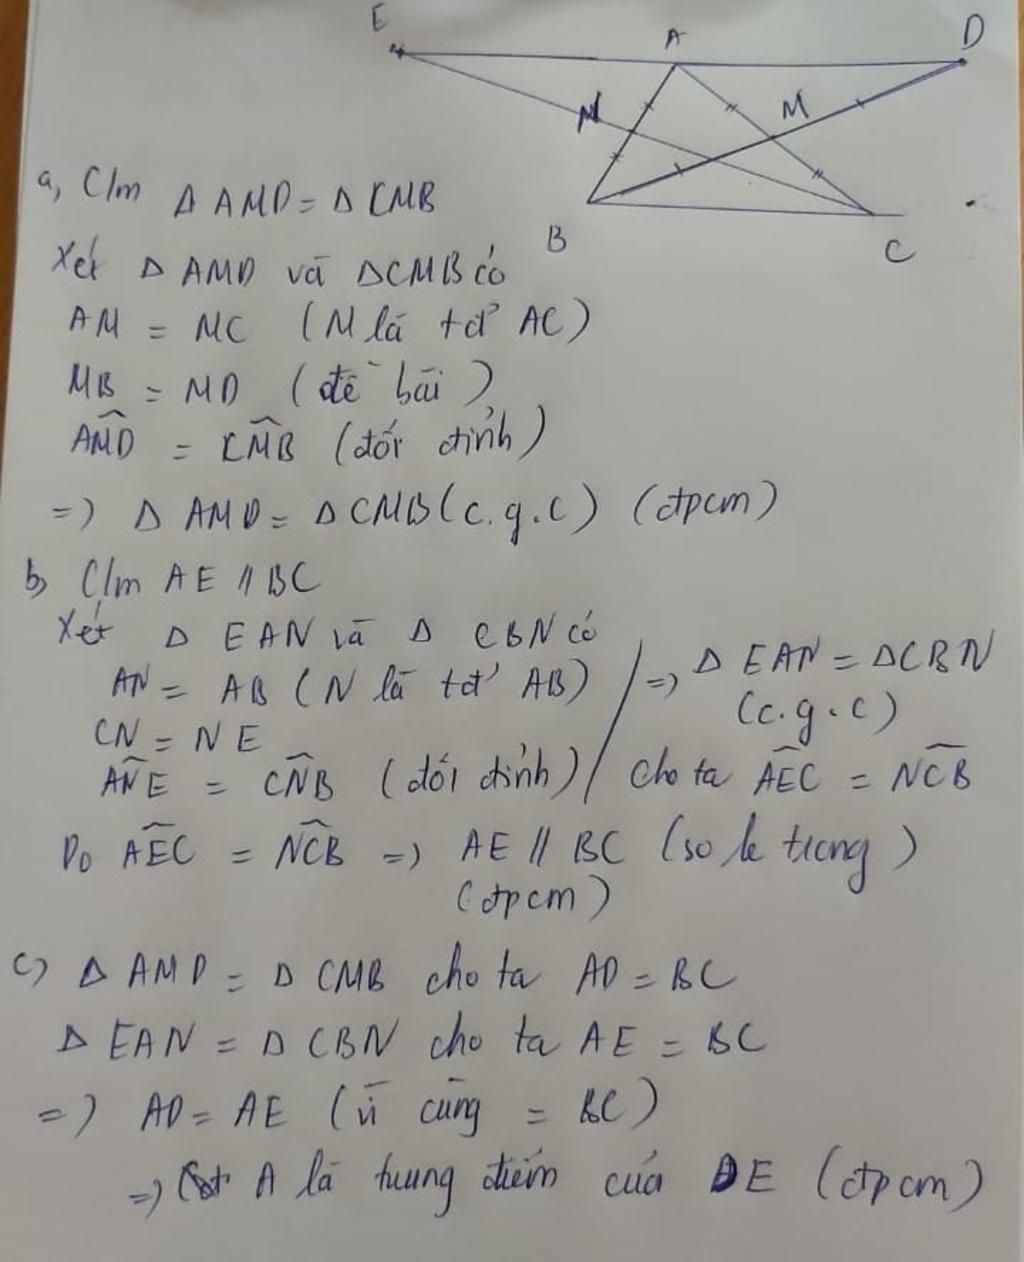 E
A
D
N
M
B
C
a, C/m Δ AMD = Δ CMB
Xét Δ AMD và ΔCMB có
AM = MC (M là tđ AC)
MB = MD (đề bài)
AMD = CMB (đối đỉnh)
=) Δ AMD = Δ CMB (c.g.c) (đpcm)
b, C/m AE // BC
Xét Δ EAN và Δ CBN có
AN = AB (N là tđ AB)
CN = NE
ANE = CNB (đối đỉnh)
=) Δ EAN = ΔCBN
(c.g.c)
cho ta AEC = NCB
Do AEC = NCB =) AE // BC (so le trong)
(đpcm)
c) Δ AMD = Δ CMB cho ta AD = BC
Δ EAN = Δ CBN cho ta AE = BC
=) AD = AE (vì cùng = BC)
=) A là trung điểm của DE (đpcm)